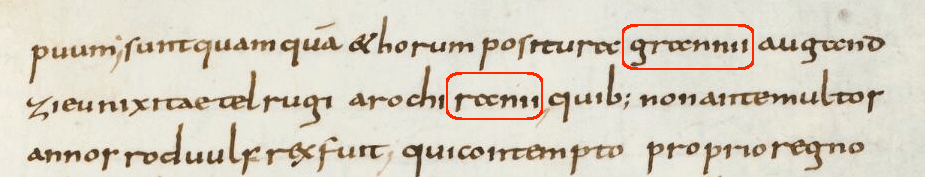 puum; sunt quam quā & horum positura grannii augand
zi eunixi taetel rugi arochi ranii, quib; non ante multos
annos roduulf rex fuit, qui contempto proprio regno